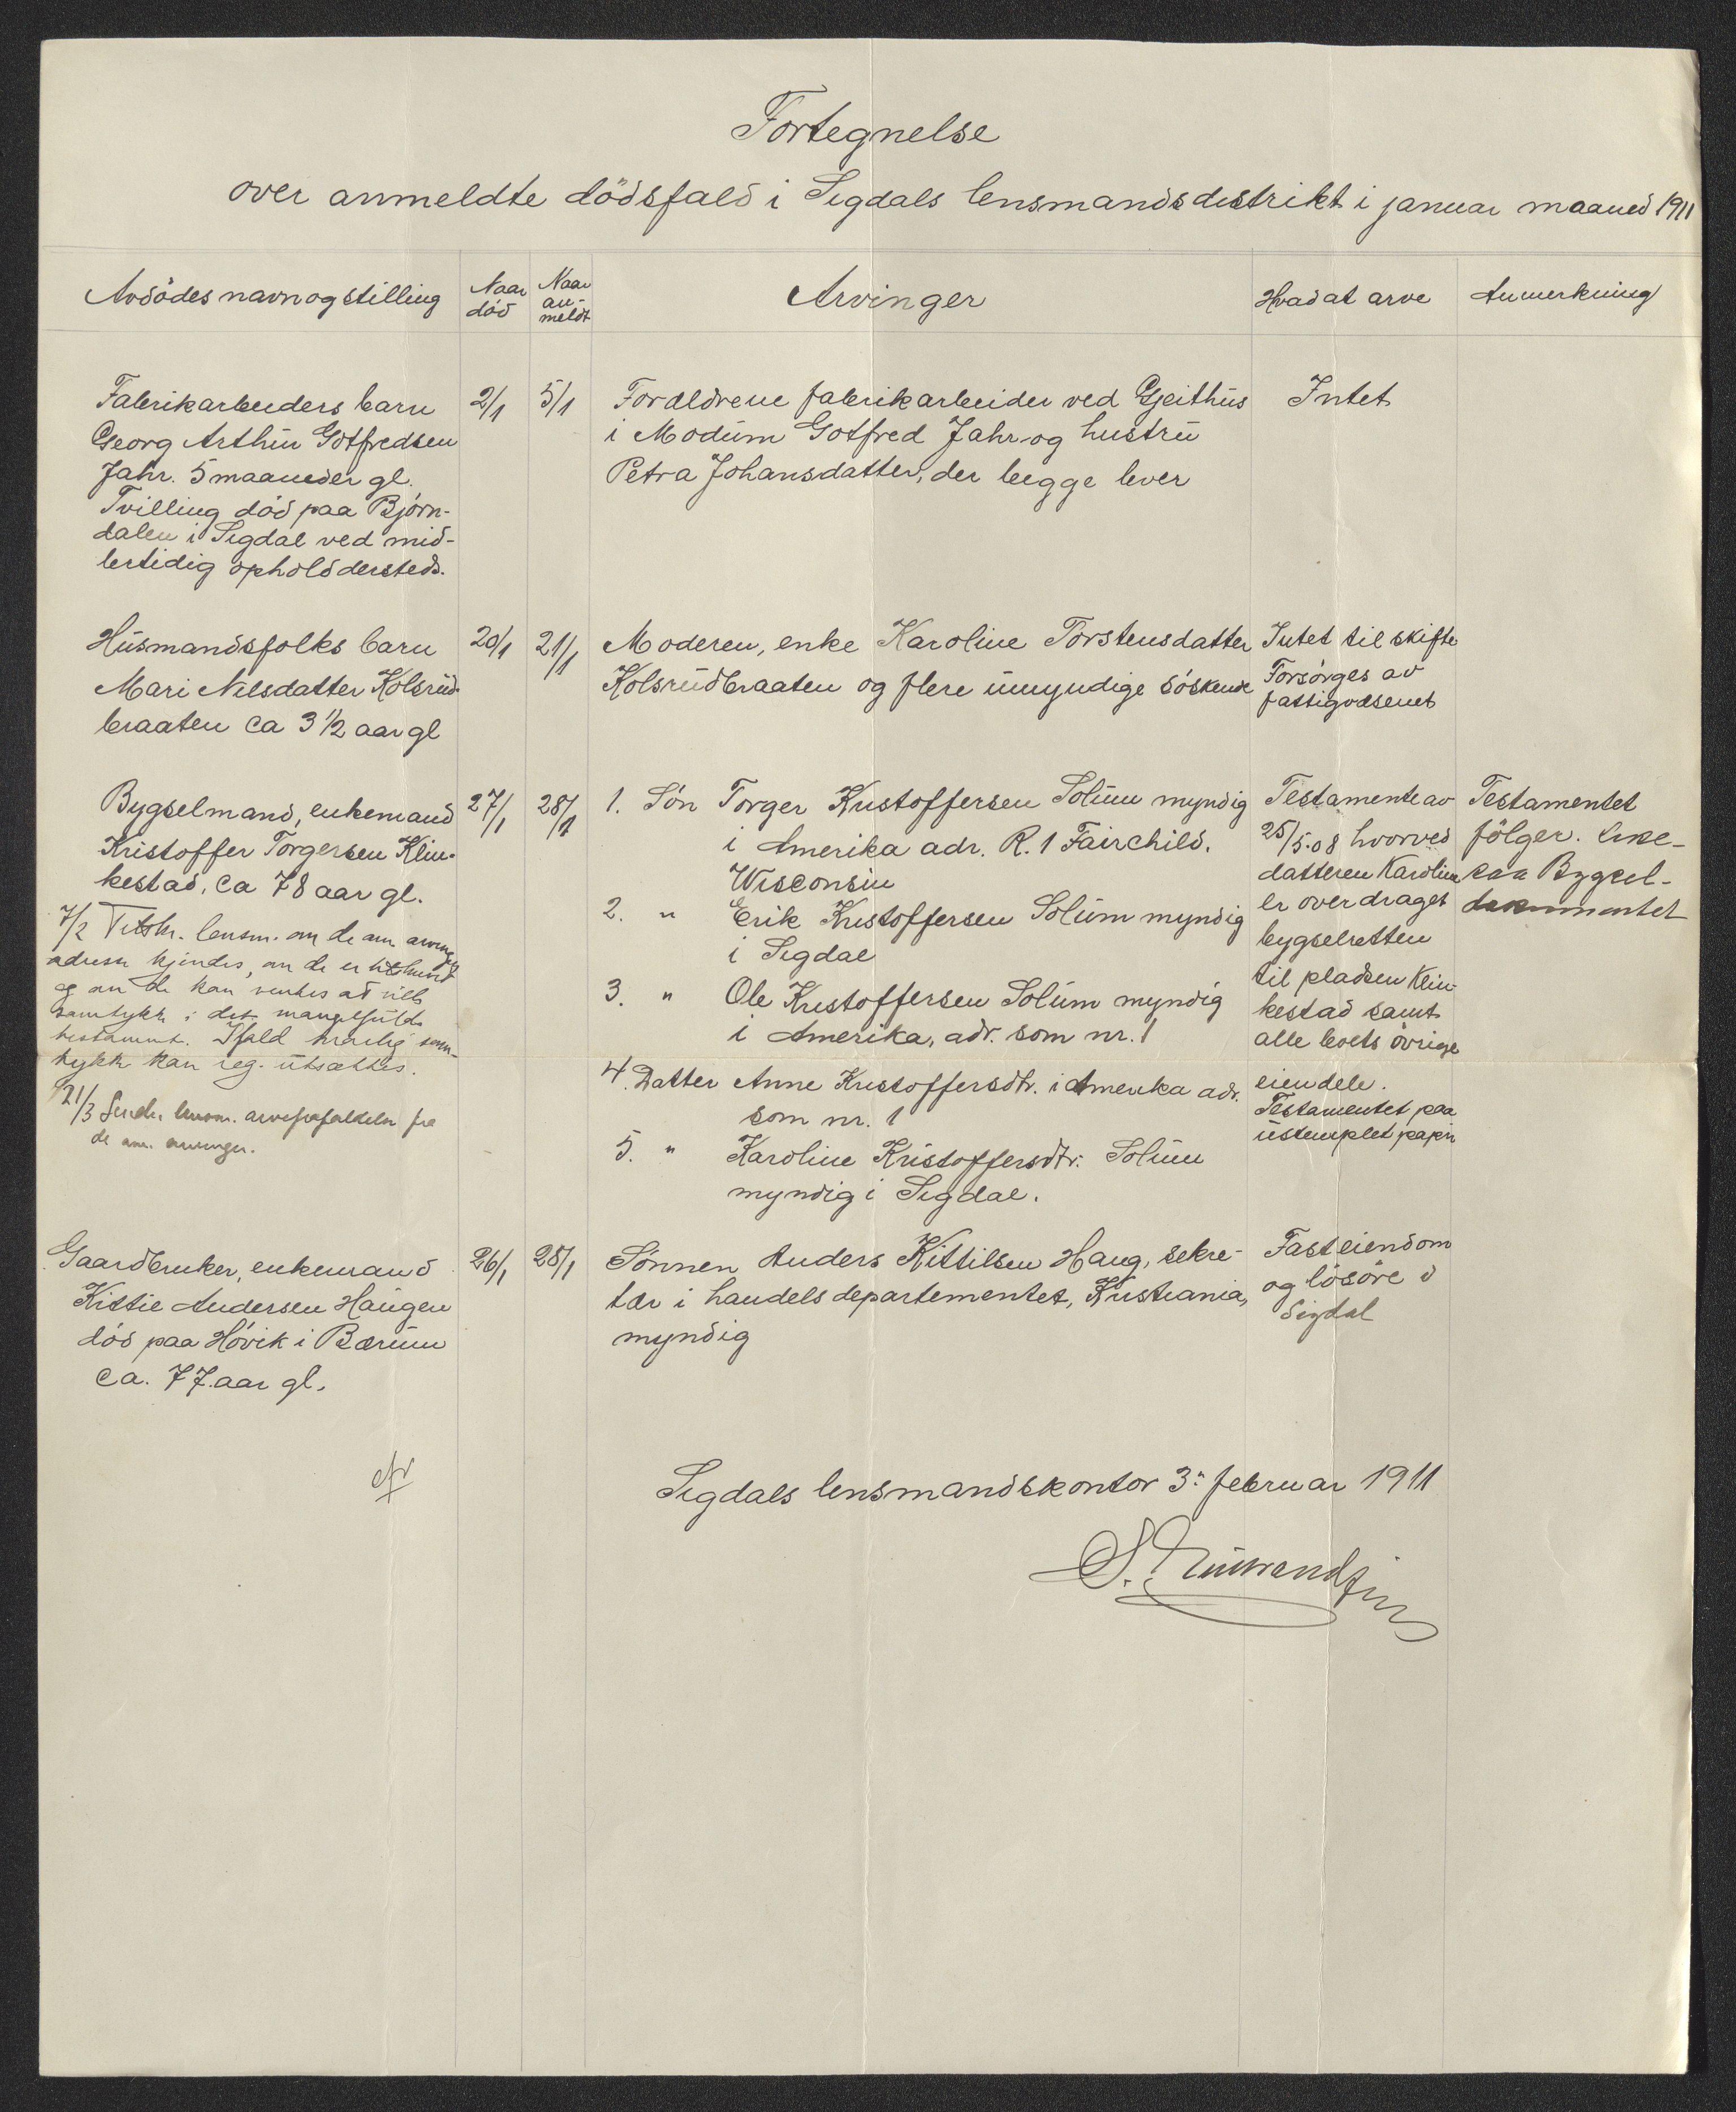 Fortegnelse
over anmeldte dödsfald i Sigdals lensmandsdistrikt i januar maaned 1911
Avdödes navn og stilling
Naar död
Naar an-
meldt
Arvinger
Hvad at arve
Anmerkning
Fabrikarbeiders barn
Georg Arthur Gotfredsen
Jahr. 5 maaneder gl.
Tvilling död paa Bjørn-
dalen i Sigdal ved mid-
lertidig ophold dersteds.
2/1
5/1
Forældrene fabrikarbeider ved Gjeithus
i Modum Gotfred Jahr og hustru
Petra Johansdatter, der begge lever
Intet
Husmandsfolks barn
Mari Nilsdatter Kolsrud-
braaten ca 3 1/2 aar gl
20/1
21/1
Moderen, enke Karoline Torstensdatter
Kolsrudbraaten og flere umyndige söskende
Intet til skifte
Forsörges av
fattigvæsenet
Bygselmand, enkemand
Kristoffer Torgersen Klin-
kestad, ca 78 aar gl.
27/1
28/1
7/2 Tilskr. lensm. om de am. arvingers
adresse kjendes, om de er
og om de kan ventes at ville
samtykke i det mangelfulde
testament. Ifald snarlig sam-
tykke kan reg. utsættes.
21/3 Sender lensm. arvefrafaldelse fra
de am. arvinger.
1. Sön Torger Kristoffersen Solum myndig
i Amerika adr. R. 1 Fairchild.
Wisconsin
2. " Erik Kristoffersen Solum myndig
i Sigdal
3. " Ole Kristoffersen Solum myndig
i Amerika, adr. som nr. 1
4. Datter Anne Kristoffersdtr. i Amerika adr.
som nr. 1
5. " Karoline Kristoffersdtr. Solum
myndig i Sigdal.
Testamente av
25/5.08 hvorved
datteren Karoline
er overdraget
bygselretten
til pladsen Klin-
kestad samt
alle boets övrige
eiendele.
Testamentet paa
ustemplet papir
Testamentet
fölger. like-
saa Bygsel-
dokumentet
Gaardbruker, enkemand
Kittil Andersen Haugen
död paa Hövik i Bærum
ca. 77 aar gl.
26/1
28/1
Sönnen Anders Kittilsen Haug, sekre-
tær i handelsdepartementet, Kristiania,
myndig
Fast eiendom
og lösöre i
Sigdal
Sigdals lensmandskontor 3. februar 1911